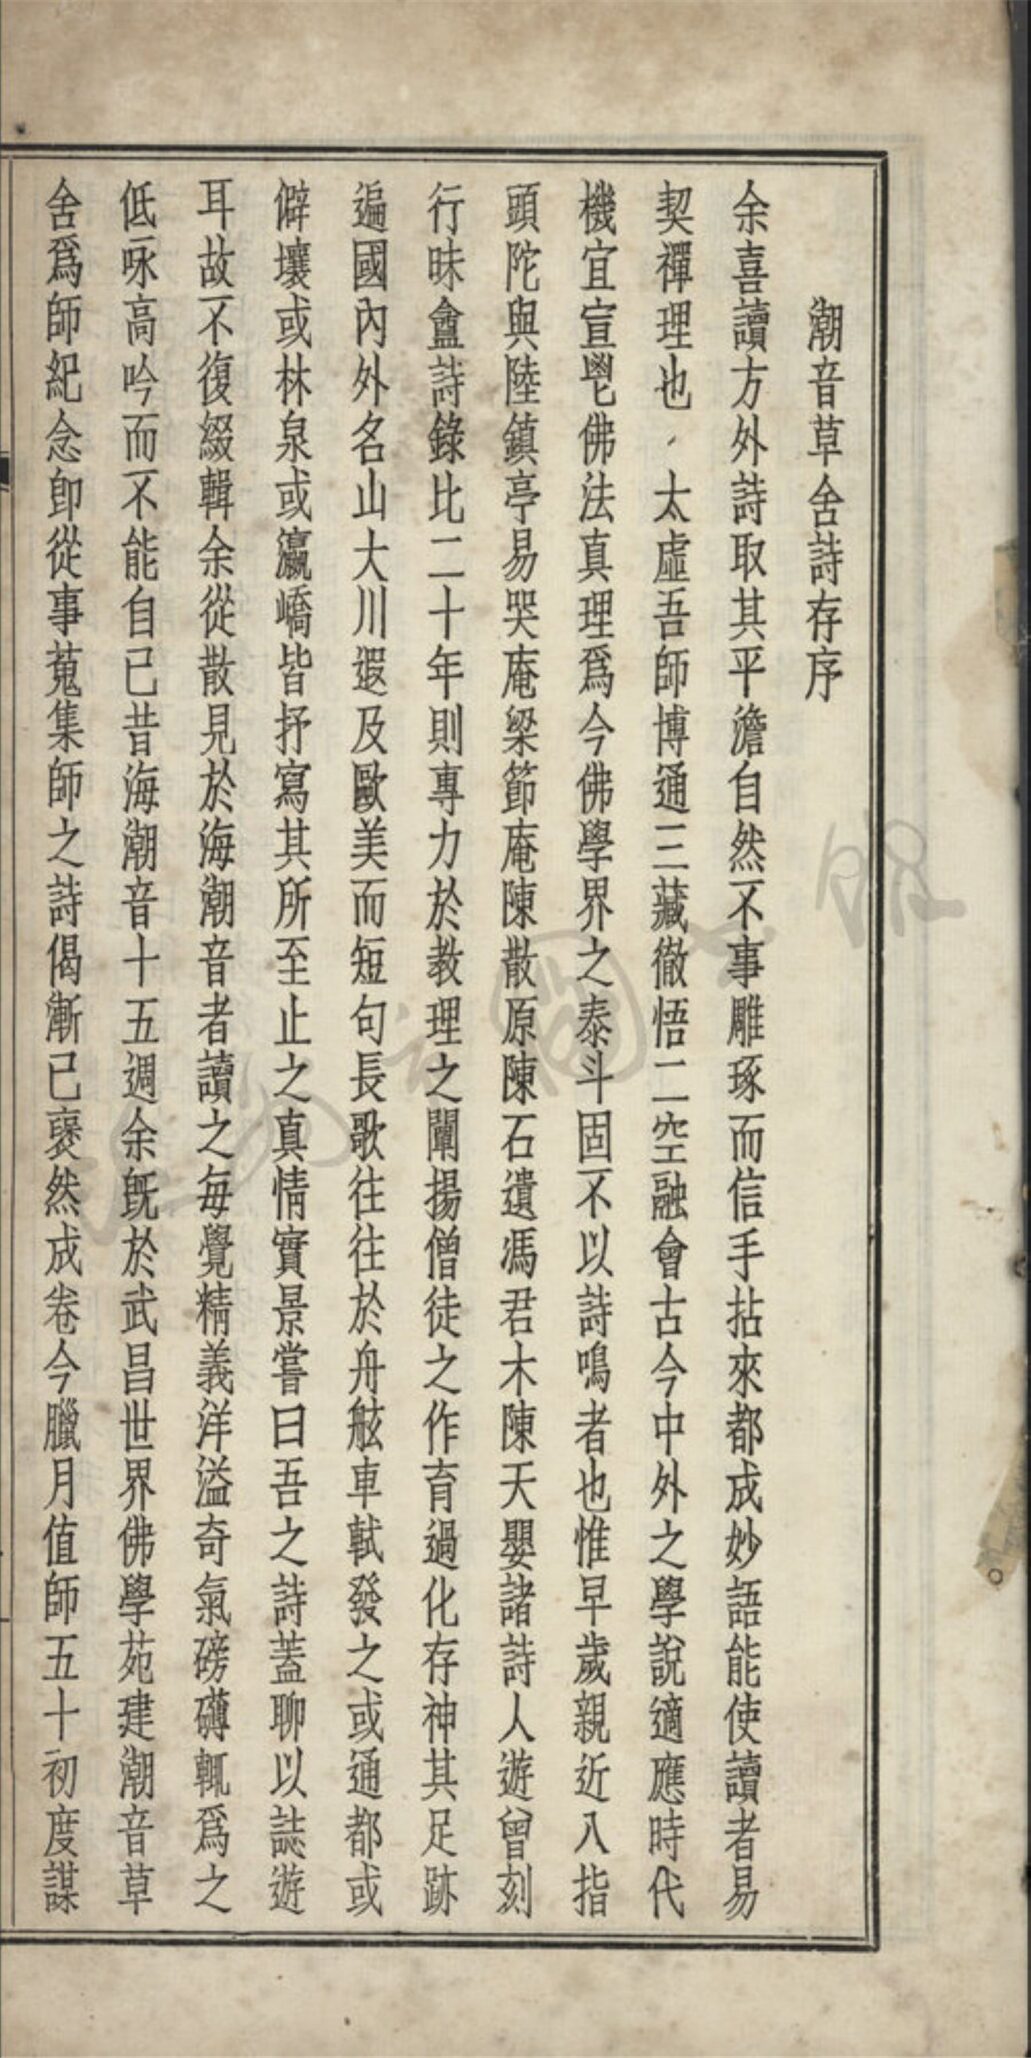 潮音草舍詩存序
余喜讀方外詩取其平澹自然不事雕琢而信手拈來都成妙語能使讀者易
契禪理也太虛吾師博通三藏徹悟二空融會古今中外之學說適應時代
機宜宣鬯佛法真理爲今佛學界之泰斗固不以詩鳴者也惟早歲親近八指
頭陀與陸鎮亭易哭庵梁節庵陳散原陳石遺馮君木陳天嬰諸詩人遊曾刻
行昧盦詩錄比二十年則專力於教理之闡揚僧徒之作育過化存神其足跡
遍國內外名山大川遐及歐美而短句長歌往往於舟舷車軾發之或通都或
僻壤或林泉或瀛嶠皆抒寫其所至止之真情實景嘗曰吾之詩蓋聊以誌遊
耳故不復綴輯余從散見於海潮音者讀之每覺精義洋溢奇氣磅礴輒爲之
低咏高吟而不能自已昔海潮音十五週余旣於武昌世界佛學苑建潮音草
舍爲師紀念卽從事蒐集師之詩偈漸已裒然成卷今臘月值師五十初度謀